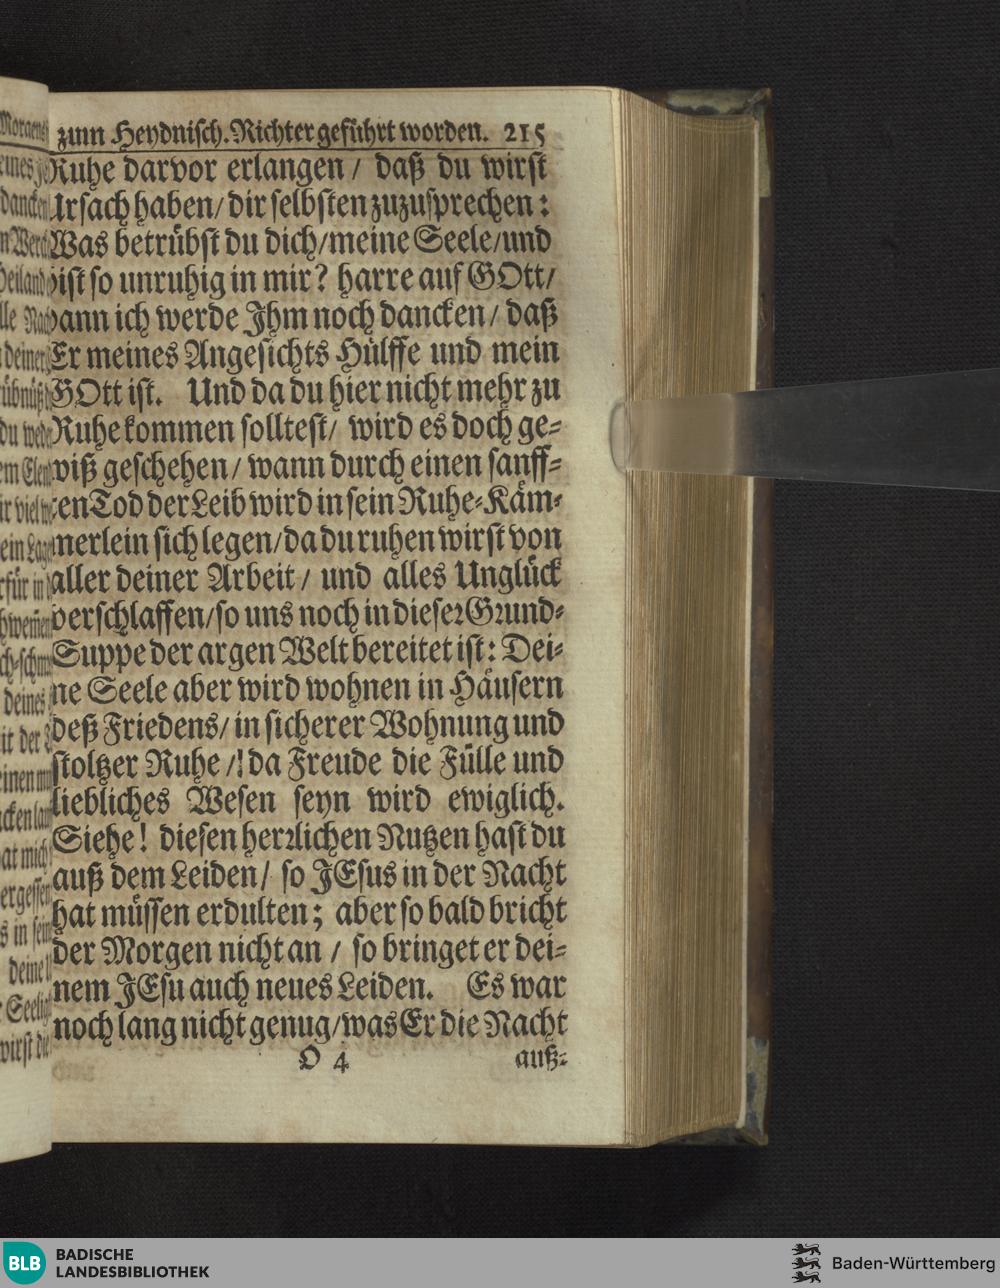 zum Heydnisch. Richter geführt worden. 215
Ruhe darvor erlangen / daß du wirst
Ursach haben / dir selbsten zuzusprechen:
Was betrübst du dich / meine Seele / und
bist so unruhig in mir? harre auf GOtt /
dann ich werde Jhm noch dancken / daß
Er meines Angesichts Hülffe und mein
GOtt ist. Und da du hier nicht mehr zu
Ruhe kommen solltest / wird es doch ge-
wiß geschehen / wann durch einen sanff-
ten Tod der Leib wird in sein Ruhe-Käm-
merlein sich legen / da du ruhen wirst von
aller deiner Arbeit / und alles Unglück
verschlaffen / so uns noch in dieser Grund-
Suppe der argen Welt bereitet ist: Dei-
ne Seele aber wird wohnen in Häusern
deß Friedens / in sicherer Wohnung und
stoltzer Ruhe /! da Freude die Fülle und
liebliches Wesen seyn wird ewiglich.
Siehe! diesen herrlichen Nutzen hast du
auß dem Leiden / so JEsus in der Nacht
hat müssen erdulten; aber so bald bricht
der Morgen nicht an / so bringet er dei-
nem JEsu auch neues Leiden. Es war
noch lang nicht genug / was Er die Nacht
O 4 auß-
BLB BADISCHE
LANDESBIBLIOTHEK
Baden-Württemberg